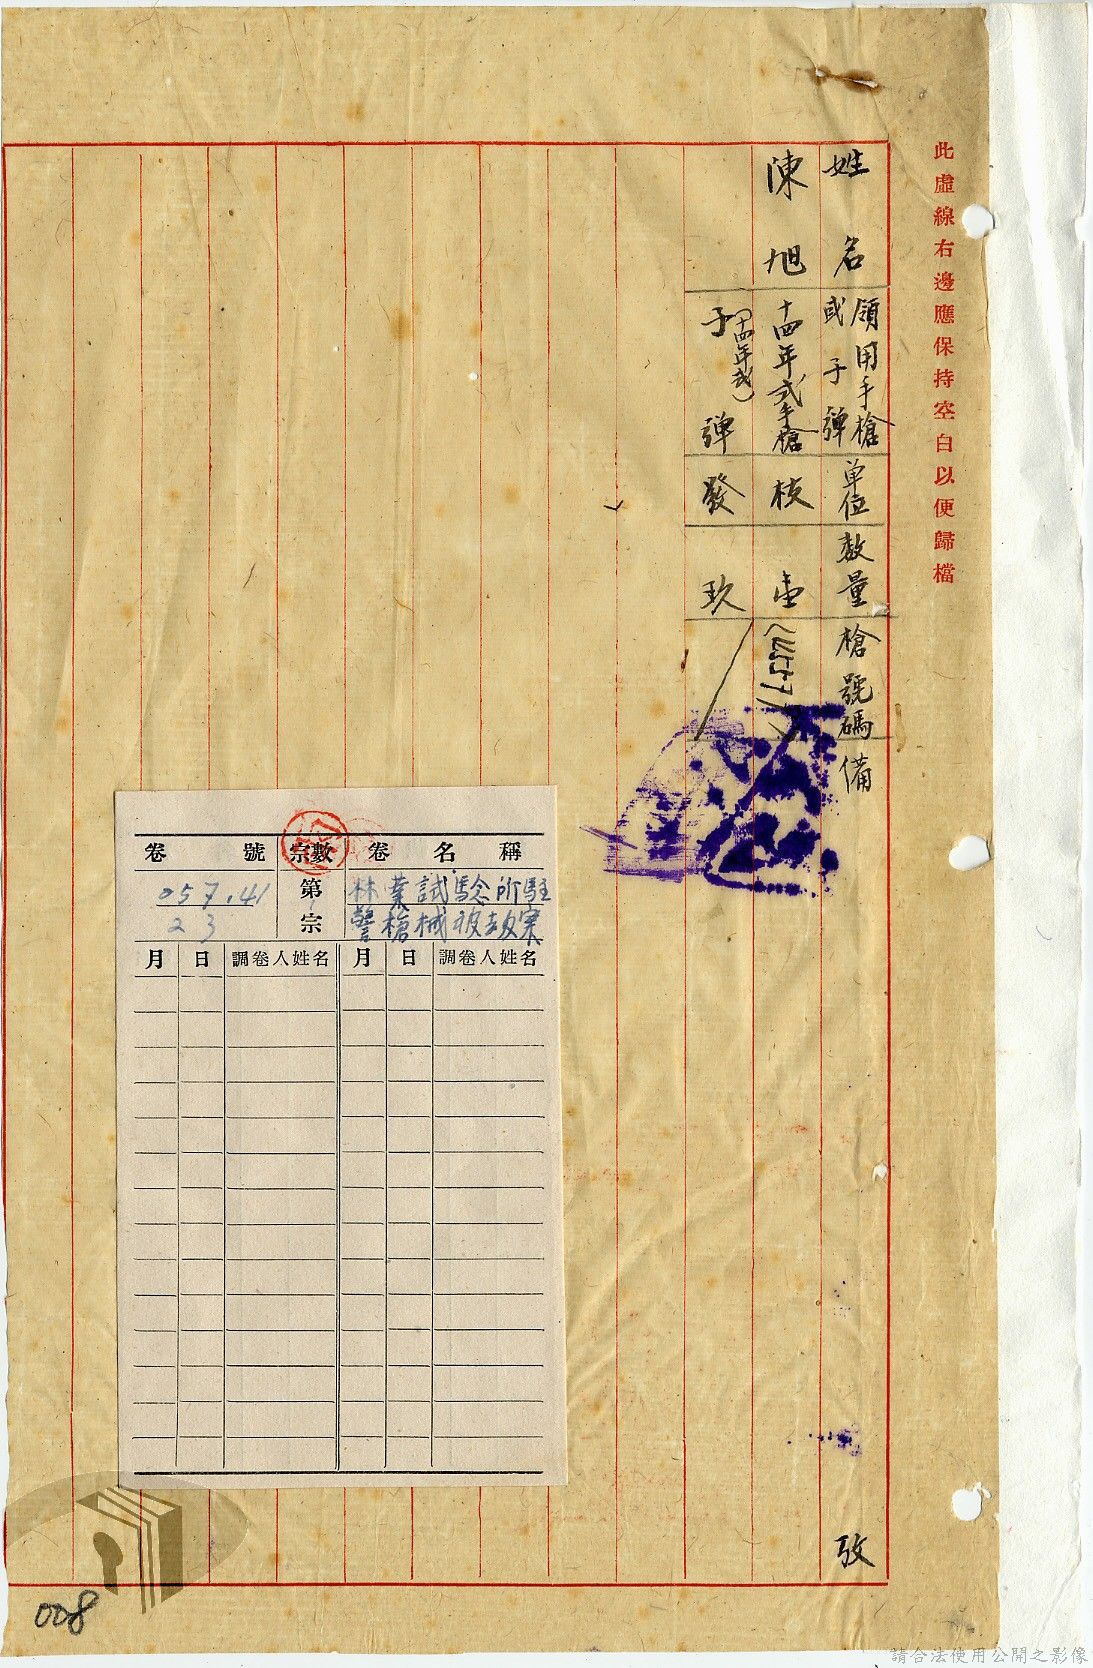 此虛線右邊應保持空白以便歸檔
姓名
領用手槍
或子彈
單位
數量
槍號碼
備
攷
陳旭
十四年式手槍
枝
壹
子彈
(十四年式)
發
玖
卷號
宗數
卷名稱
057.41
23
第
宗
林業試驗所駐
警槍械被劫案
月 日 調卷人姓名 月 日 調卷人姓名
008
請合法使用公開之影像